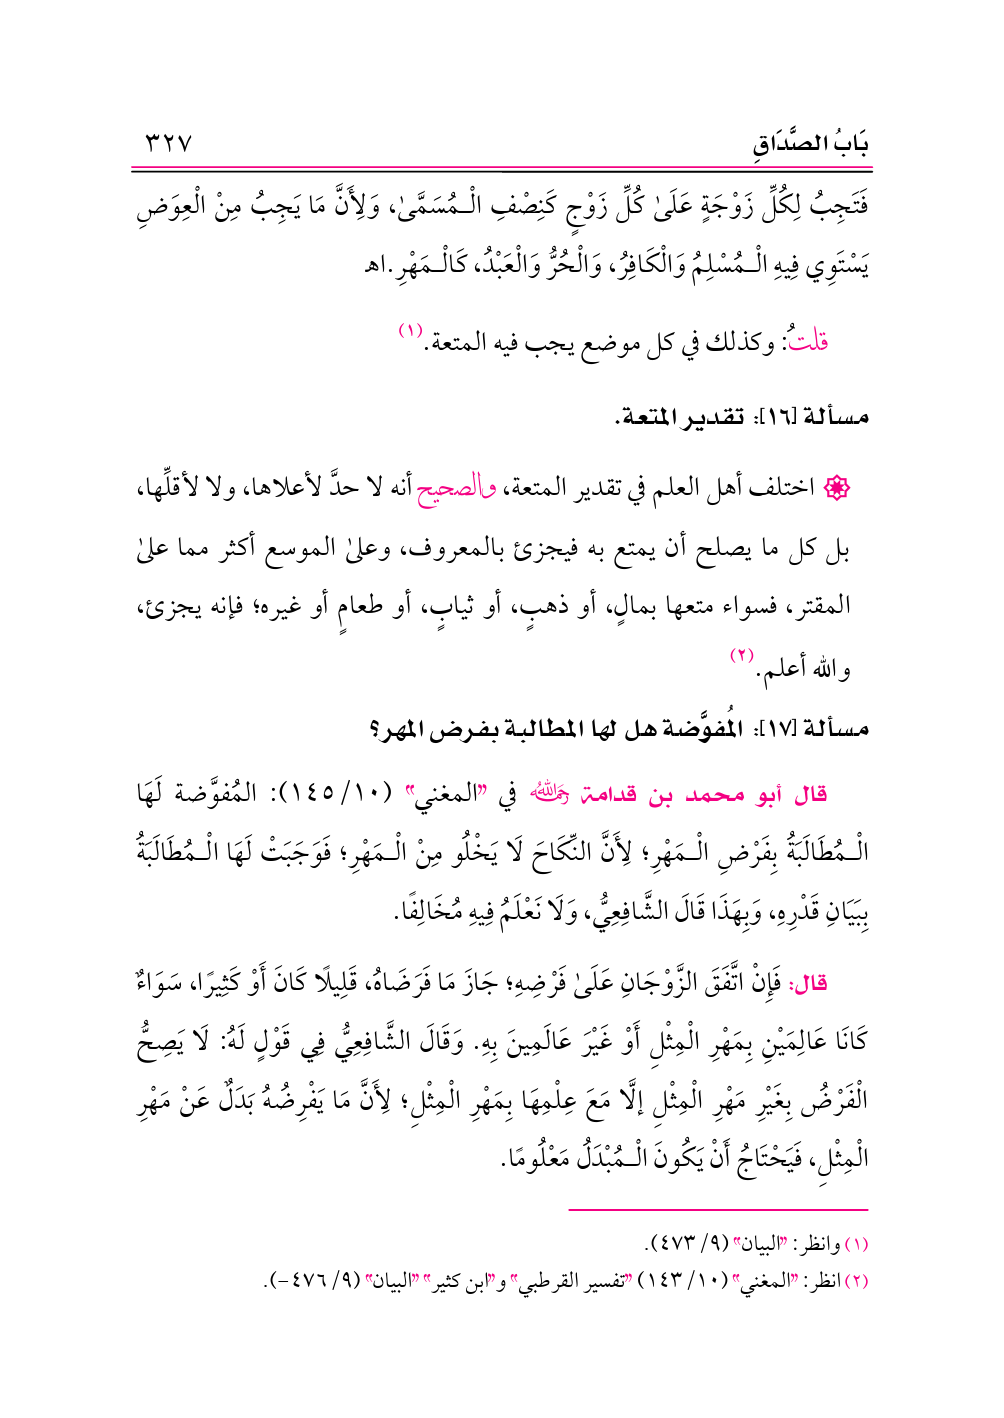 بَابُ الصَّدَاقِ ٣٢٧
فَتَجِبُ لِكُلِّ زَوْجَةٍ عَلَىٰ كُلِّ زَوْجٍ كَنِصْفِ الْـمُسَمَّىٰ، وَلِأَنَّ مَا يَجِبُ مِنْ الْعِوَضِ
يَسْتَوِي فِيهِ الْـمُسْلِمُ وَالْكَافِرُ، وَالْحُرُّ وَالْعَبْدُ، كَالْـمَهْرِ.اهـ
قلتُ: وكذلك في كل موضع يجب فيه المتعة.(١)
مسألة [١٦]: تقدير المتعة.
اختلف أهل العلم في تقدير المتعة، والصحيح أنه لا حدَّ لأعلاها، ولا لأقلِّها،
بل كل ما يصلح أن يمتع به فيجزئ بالمعروف، وعلىٰ الموسع أكثر مما علىٰ
المقتر، فسواء متعها بمالٍ، أو ذهبٍ، أو ثيابٍ، أو طعامٍ أو غيره؛ فإنه يجزئ،
والله أعلم.(٢)
مسألة [١٧]: المُفوَّضة هل لها المطالبة بفرض المهر؟
قال أبو محمد بن قدامة رحمه الله في "المغني" (١٠/ ١٤٥): المُفوَّضة لَهَا
الْـمُطَالَبَةُ بِفَرْضِ الْـمَهْرِ؛ لِأَنَّ النِّكَاحَ لَا يَخْلُو مِنْ الْـمَهْرِ؛ فَوَجَبَتْ لَهَا الْـمُطَالَبَةُ
بِبَيَانِ قَدْرِهِ، وَبِهَذَا قَالَ الشَّافِعِيُّ، وَلَا نَعْلَمُ فِيهِ مُخَالِفًا.
قال: فَإِنْ اتَّفَقَ الزَّوْجَانِ عَلَىٰ فَرْضِهِ؛ جَازَ مَا فَرَضَاهُ، قَلِيلًا كَانَ أَوْ كَثِيرًا، سَوَاءٌ
كَانَا عَالِمَيْنِ بِمَهْرِ الْمِثْلِ أَوْ غَيْرَ عَالَمِينَ بِهِ. وَقَالَ الشَّافِعِيُّ فِي قَوْلٍ لَهُ: لَا يَصِحُّ
الْفَرْضُ بِغَيْرِ مَهْرِ الْمِثْلِ إلَّا مَعَ عِلْمِهَا بِمَهْرِ الْمِثْلِ؛ لِأَنَّ مَا يَفْرِضُهُ بَدَلٌ عَنْ مَهْرِ
الْمِثْلِ، فَيَحْتَاجُ أَنْ يَكُونَ الْـمُبْدَلُ مَعْلُومًا.
(١) وانظر: "البيان" (٩/ ٤٧٣).
(٢) انظر: "المغني" (١٠/ ١٤٣) "تفسير القرطبي" و"ابن كثير" "البيان" (٩/ ٤٧٦-).